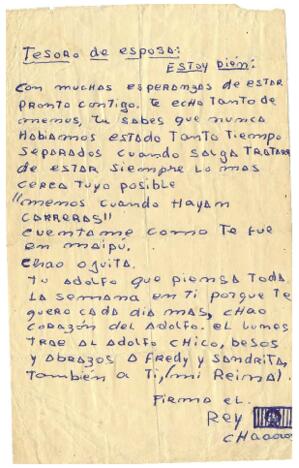 Tesoro de esposa:
Estoy bién:
Con muchas esperanzas de estar
pronto contigo. Te echo tanto de
menos, tu sabes que nunca
habiamos estado tanto tiempo
separados cuando salga tratare
de estar siempre lo mas
cerca tuyo posible
"menos cuando hayan
carreras"
Cuentame como te fue
en maipu.
Chao oguita.
Tu Adolfo que piensa toda
la semana en ti porque te
quero cada dia mas, chao
corazón del Adolfo. el lunes
trae al Adolfo chico, besos
y abrazos a Fredy y Sandrita,
también a ti, (mi Reina).
Firma el
Rey
chaaoo